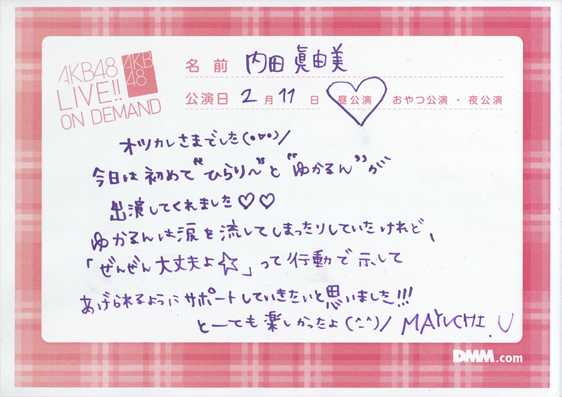 AKB48
LIVE!!
ON DEMAND
AKB
48
名前 内田眞由美
公演日 2月11日 昼公演 おやつ公演・夜公演
オツカレさまでした(○▽○)/
今日は初めて"ひらり〜"と"ゆかるん"が
出演してくれました♡♡
ゆかるんは涙を流してしまったりしていたけれど、
「ぜんぜん大丈夫よ☆」って行動で示して
あげられるようにサポートしていきたいと思いました!!!
とーても楽しかったよ(^-^)/ MAYUCHI.U
DMM.com